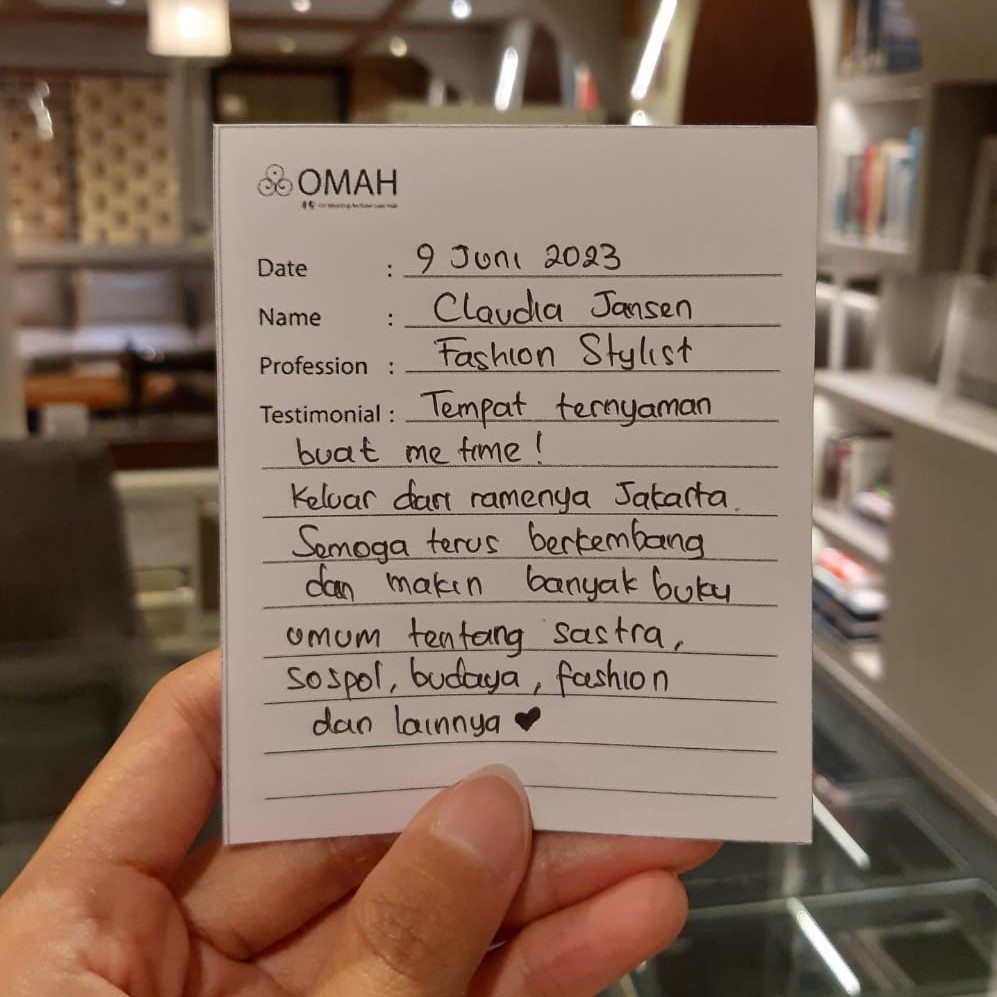 OMAH
Date : 9 Juni 2023
Name : Claudia Jansen
Profession : Fashion Stylist
Testimonial : Tempat ternyaman
buat me time!
Keluar dari ramenya Jakarta.
Semoga terus berkembang
dan makin banyak buku
umum tentang sastra,
sospol, budaya, fashion
dan lainnya ♥